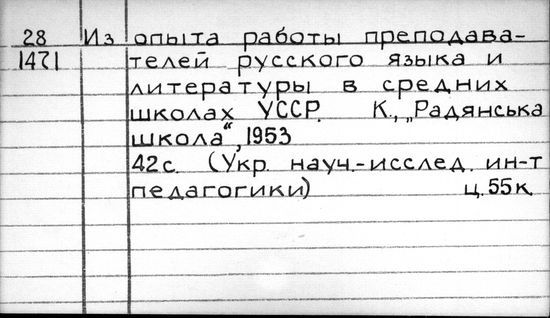 28 Из опыта работы преподава-
1471 телей русского языка и
литературы в средних
школах УССР. К., „Радянська
школа“, 1953
42 с. (Укр. науч.-исслед. ин-т
педагогики) ц. 55 к.